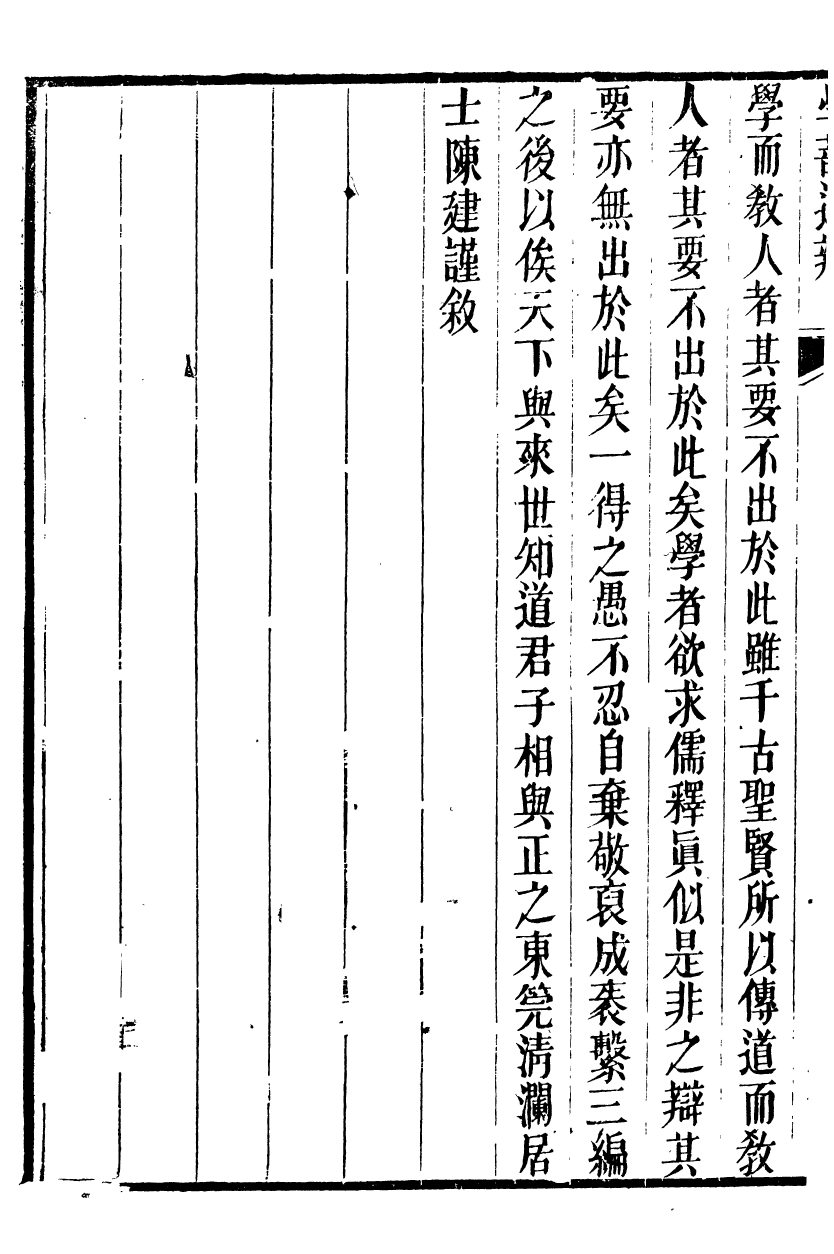 學蔀通辨
學而教人者其要不出於此雖千古聖賢所以傳道而教
人者其要不出於此矣學者欲求儒釋眞似是非之辯其
要亦無出於此矣一得之愚不忍自棄敬裒成袠繫三編
之後以俟天下與來世知道君子相與正之東筦清瀾居
士陳建謹敘